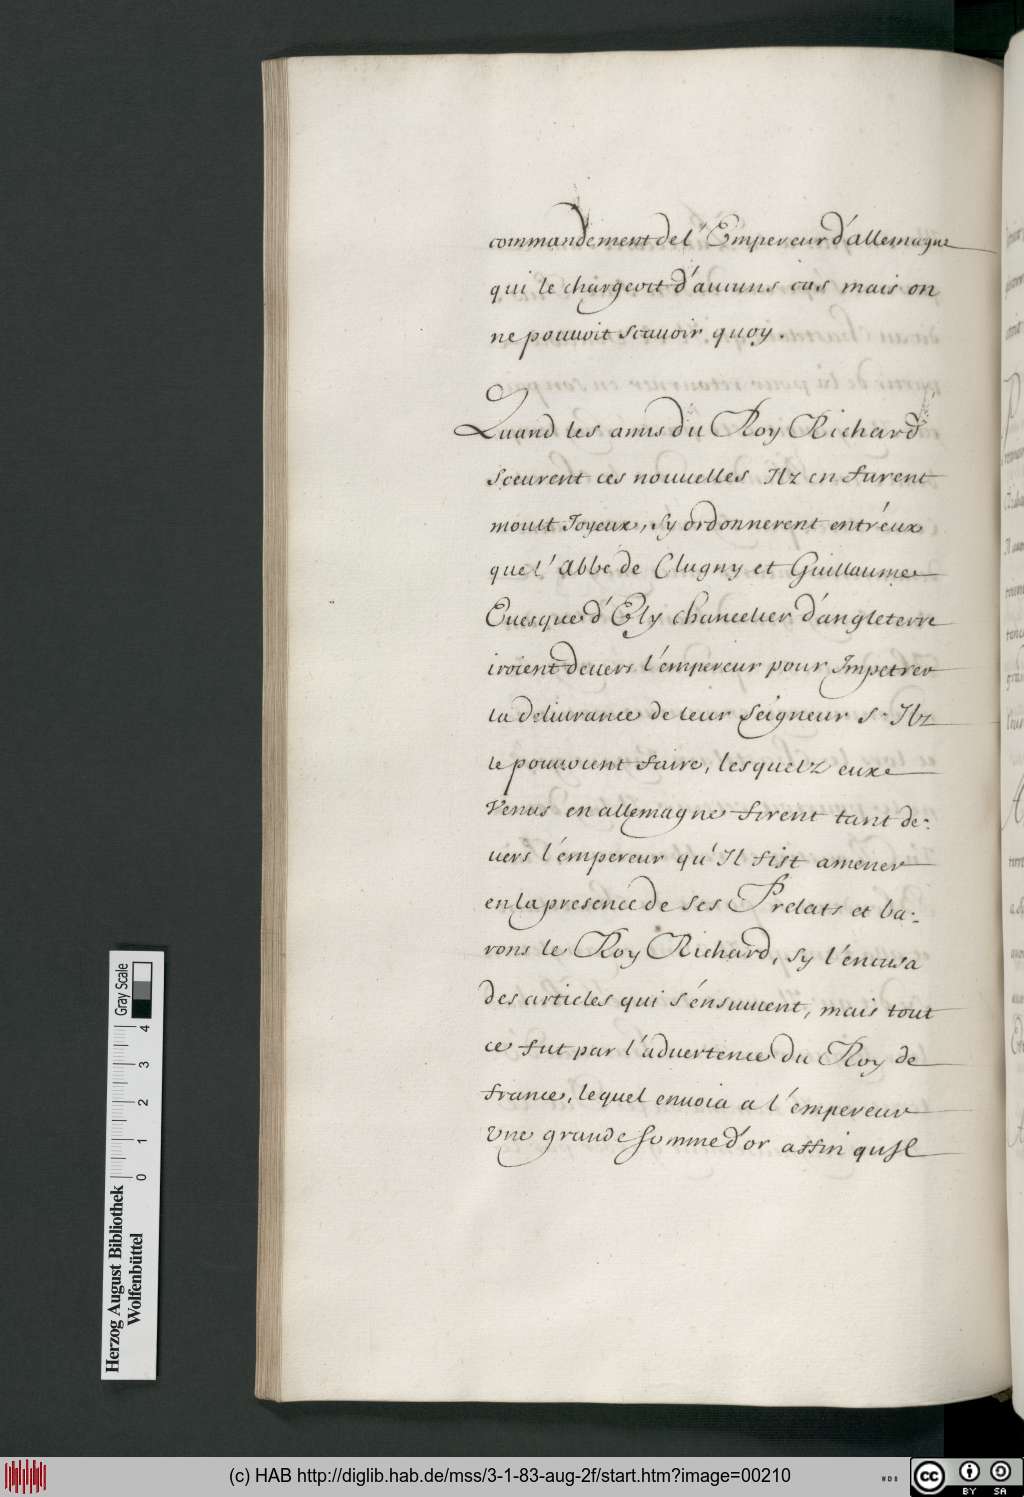 commandement de l'Empereur d'allemagne
qui le chargeoit d'aucuns cas mais on
ne pouuoit scauoir quoy.
Quand les amis du Roy Richard
sceurent ces nouuelles Ilz en furent
moult Joyeux, sy ordonnerent entr'eux
que l'Abbé de Clugny et Guillaume
Euesque d'Ely chancelier d'angleterre
iroient deuers l'empereur pour Impetrer
la deliurance de leur seigneur s'Ilz
le pouuoient faire, lesquelz euxe
Venus en allemagne firent tant de-
uers l'empereur qu'Il fist amener
en la presence de ses Prelats et ba-
rons le Roy Richard, sy l'encusa
des articles qui s'ensuiuent, mais tout
ce fut par l'aduertence du Roy de
france, lequel enuoia a l'empereur
Vne grande somme d'or affin qu'Il
Gray Scale
0 1 2 3 4
Herzog August Bibliothek
Wolfenbüttel
(c) HAB http://diglib.hab.de/mss/3-1-83-aug-2f/start.htm?image=00210
WDB
cc BY SA